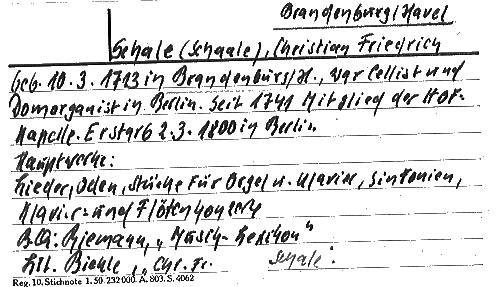 Brandenburg/Havel
Schale (Schaale), Christian Friedrich
geb. 10. 3. 1723 in Brandenburg/H., war Cellist und
Domorganist in Berlin. Seit 1741 Mitglied der Hof-
kapelle. Er starb 2. 3. 1800 in Berlin
Hauptwerke:
Lieder, Oden, Stücke für Orgel u. Klavier, Sinfonien,
Klavier- und Flötenkonzerte
Riemann, „Musik-Lexikon"
Lit. Biehle, „Chr. Fr. Schale:
Reg. 10. Stichnote 1. 50. 232 000. A. 803. S. 4062